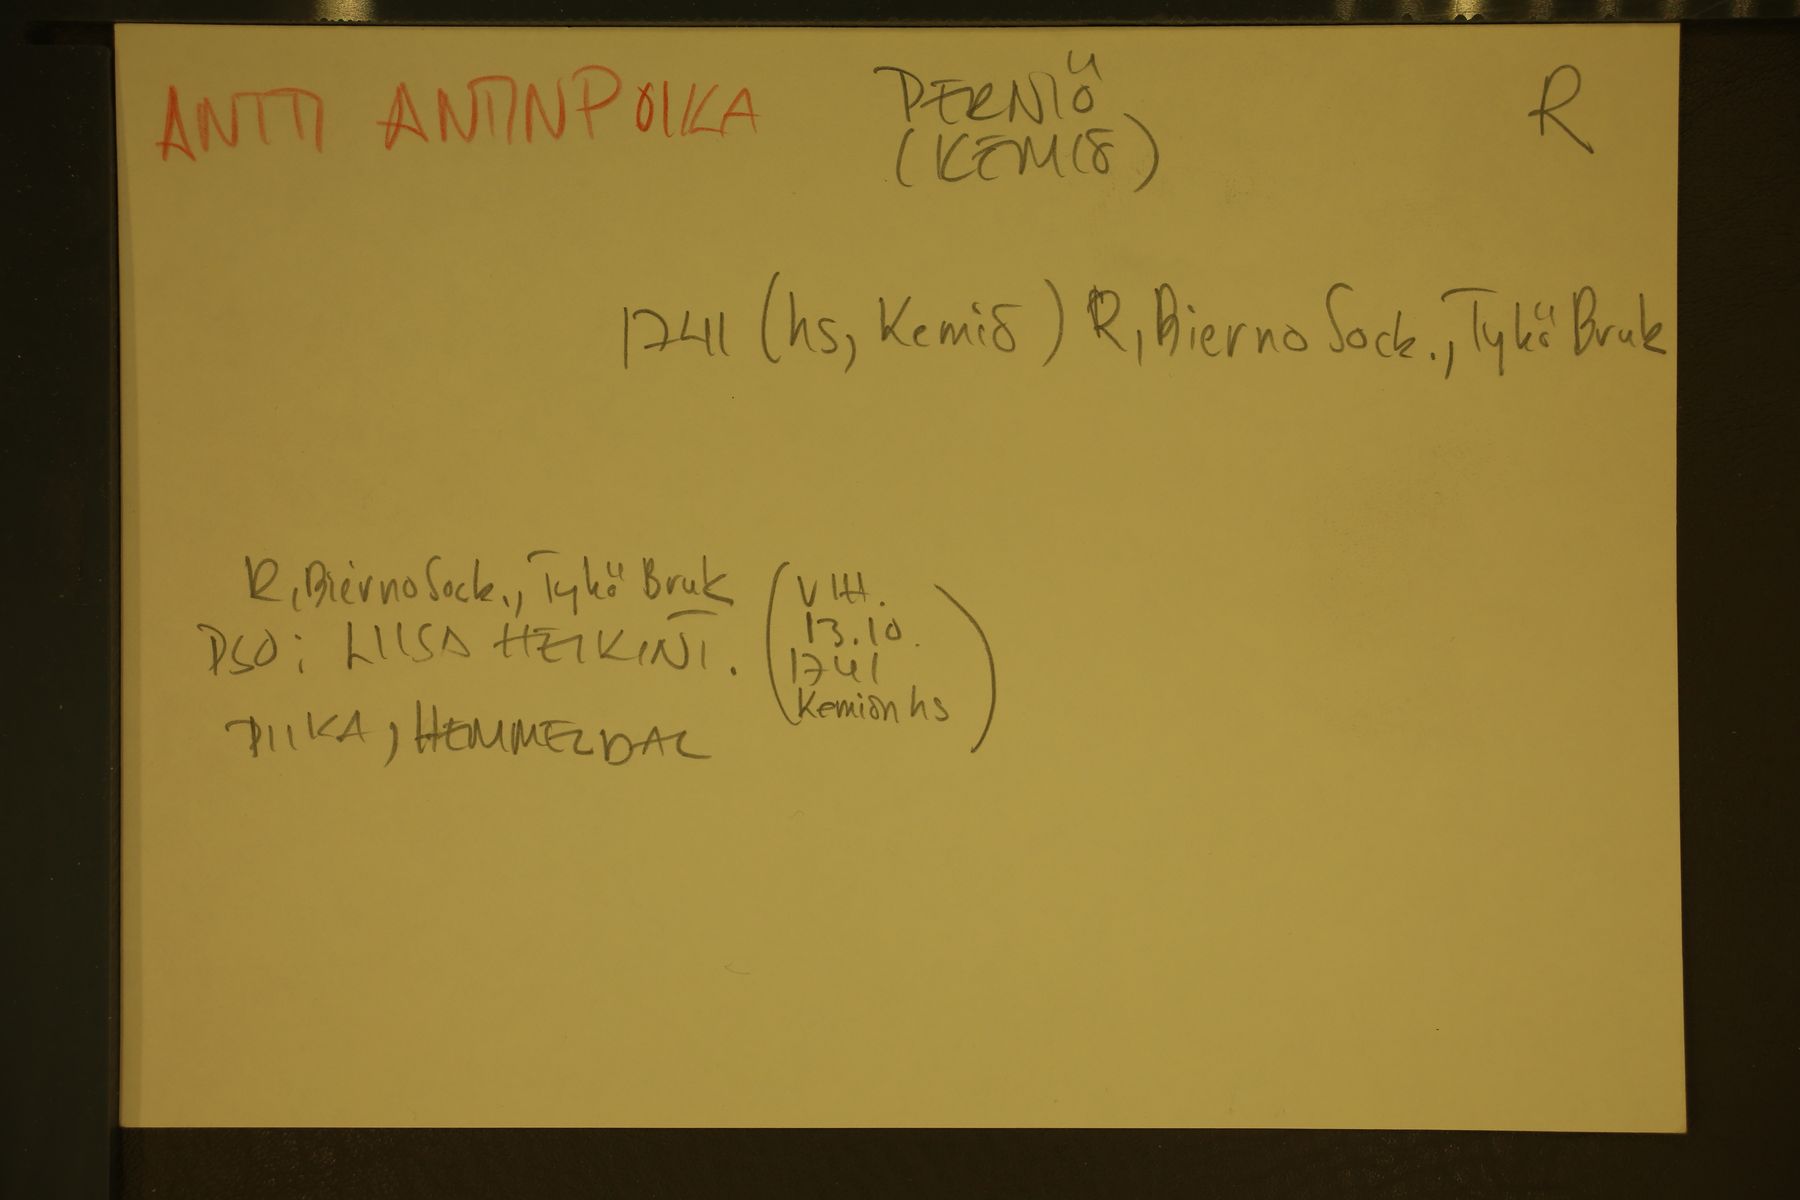 ANTTI ANTINPOIKA PERNIÖ R
(KEMIÖ)
1741 (hs, Kemiö) R, Bierno Sock., Tykö Bruk
R, Bierno Sock., Tykö Bruk
PSO: LIISA HEIKINT.
PIIKA, HEMMELDAL
(VIH.
13.10.
1741
Kemiön hs)